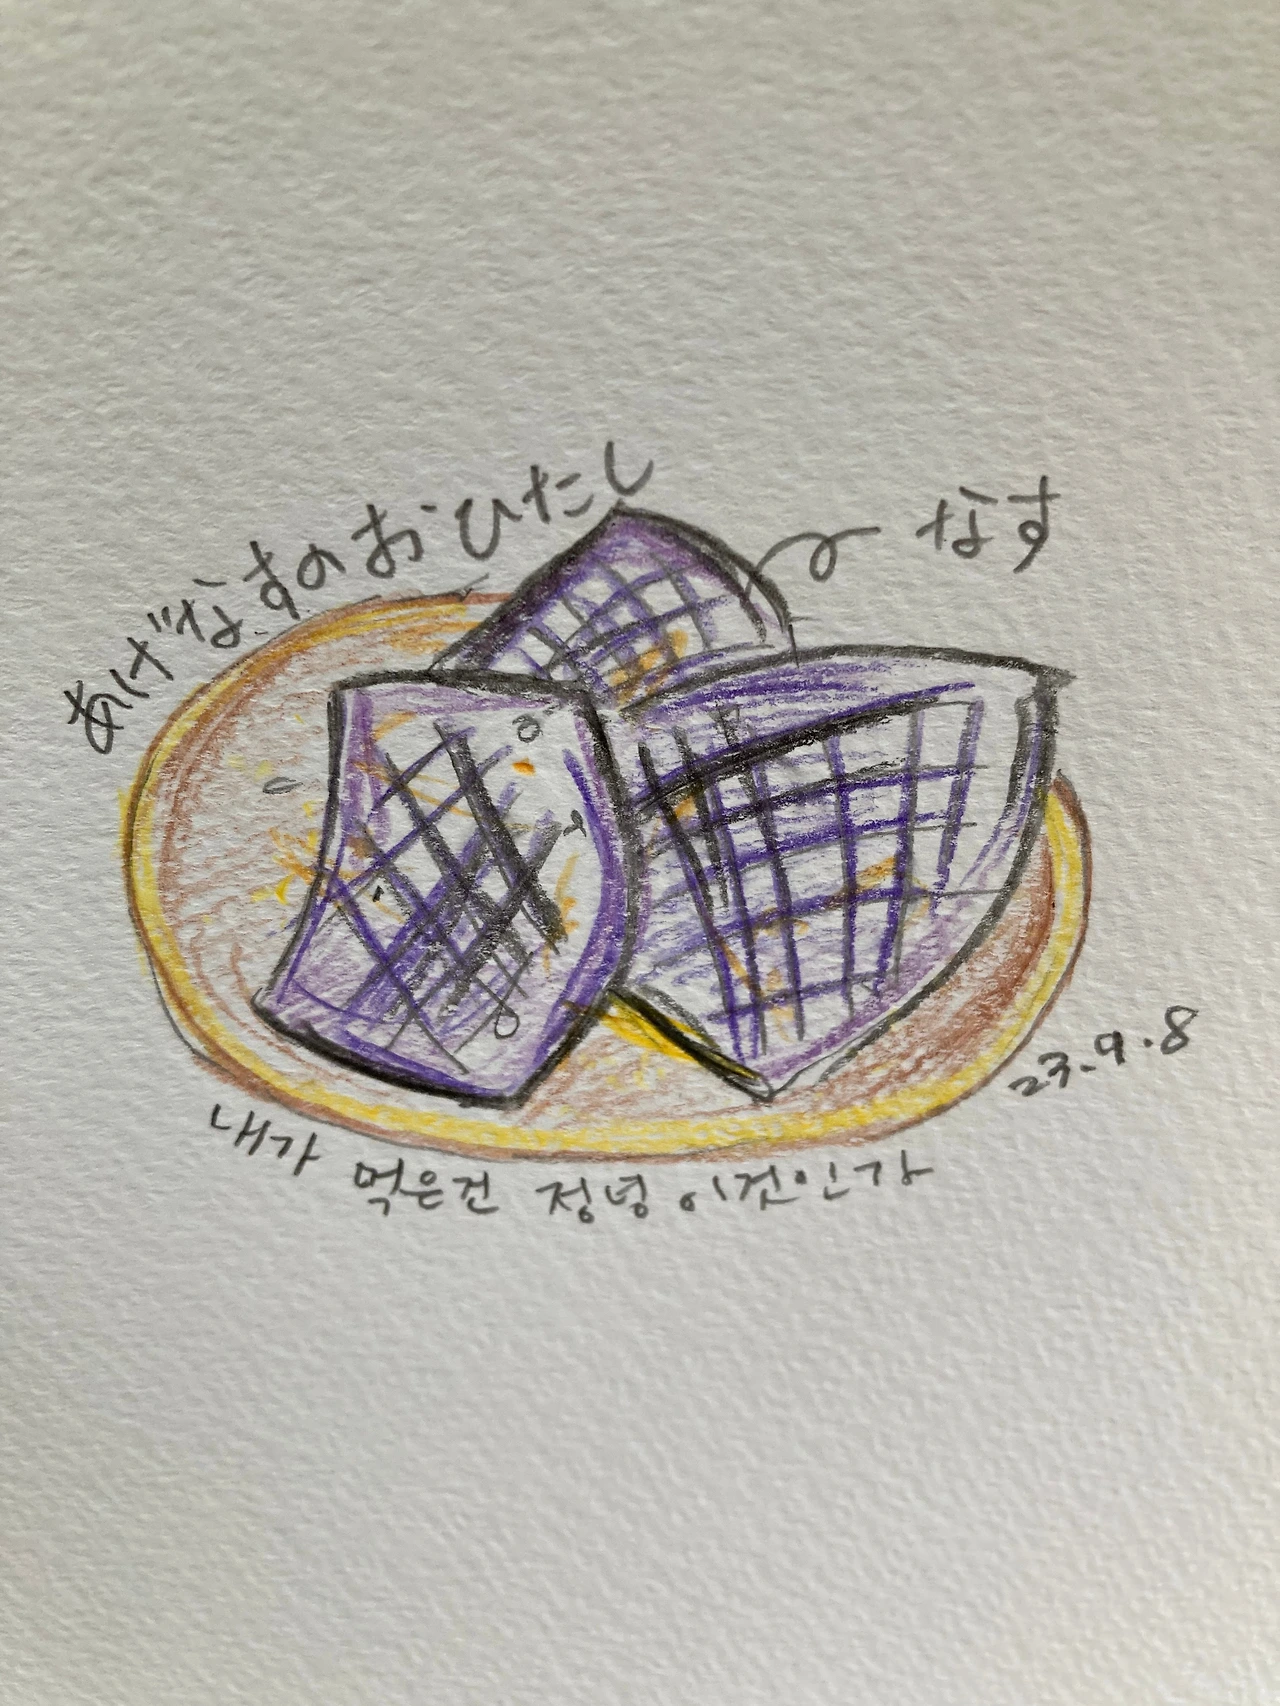 あげなすのおひたし
なす
23.9.8
내가 먹은건 정녕 이것인가